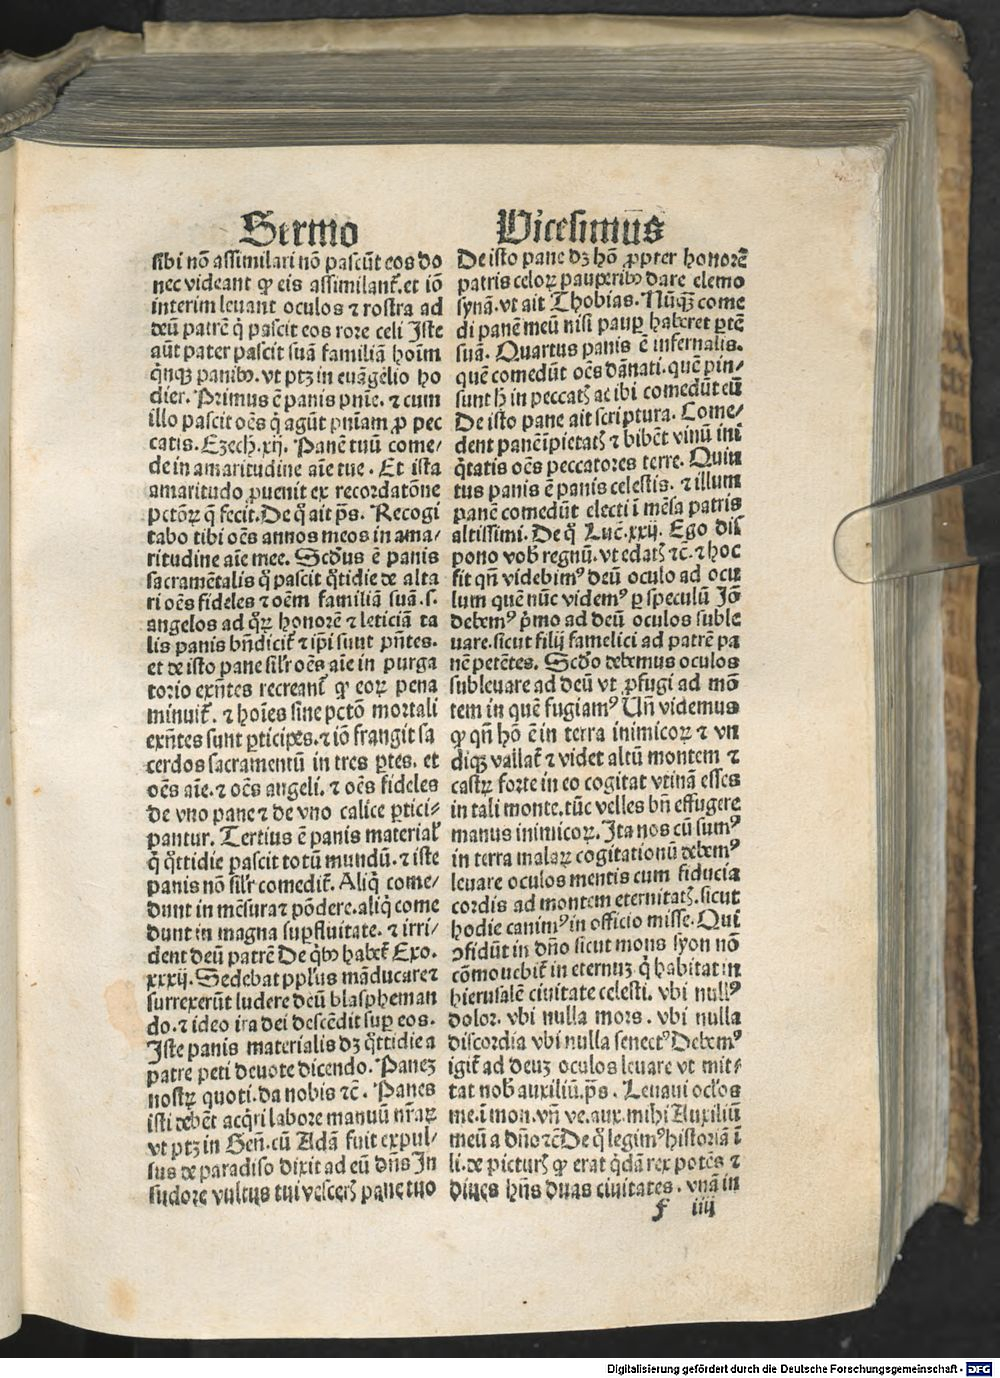 Sermo Vicesimus
sibi nō assimilari nō pascūt eos do
nec videant ꝙ eis assimilant᷑. et iō
interim leuant oculos ⁊ rostra ad
deū patrē q̇ pascit eos rore celi Iste
aūt pater pascit suā familiā hoīm
q̇nqꝫ panibꝰ. vt ptꝫ in euāgelio ho
dier. Primus ē panis pnīe. ⁊ cum
illo pascit oēs q̇ agūt pnīam ꝓ pec
catis. Ezech. xij. Panē tuū come⸗
de in amaritudine aīe tue. Et ista
amaritudo ꝓuenit ex recordatōne
pctōꝝ q̄ fecit. De q̊ ait ps. Recogi
tabo tibi oēs annos meos in ama⸗
ritudine aīe mee. Scd̓us ē panis
sacramētalis q̊ pascit q̊tidie de alta
ri oēs fideles ⁊ oēm familiā suā. s.
angelos ad q̊ꝝ honorē ⁊ leticiā ta
lis panis bn̄dicit᷑ ⁊ ip̄i sunt pn̄tes.
et de isto pane sil̓r oēs aīe in purga
torio exn̄tes recreant᷑ ꝙ eoꝝ pena
minuit᷑. ⁊ hoīes sine pctō mortali
exn̄tes sunt ꝑticipes. ⁊ iō frangit sa
cerdos sacramentū in tres ꝑtes. et
oēs aīe. ⁊ oēs angeli. ⁊ oēs fideles
de vno pane ⁊ de vno calice ꝑtici⸗
pantur. Tertius ē panis material̓
q̊ q̊ttidie pascit totū mundū. ⁊ iste
panis nō sil̓r comedit᷑. Aliq̇ come⸗
dunt in mēsura ⁊ pōdere. aliq̇ come
dunt in magna suꝑfluitate. ⁊ irri⸗
dent deū patrē De q̇bꝰ habet᷑ Exo.
xxxij. Sedebat ppl̓us māducare ⁊
surrexerūt ludere deū blaspheman
do. ⁊ ideo ira dei descēdit suꝑ eos.
Iste panis materialis dꝫ q̊ttidie a
patre peti deuote dicendo. Paneꝫ
nostꝝ quoti. da nobis ⁊c̄. Panes
isti debēt acq̇ri labore manuū nr̄aꝝ
vt ptꝫ in Gen̄. cū Adā fuit expul⸗
sus de paradiso dixit ad eū dn̄s In
sudore vultus tui vesceris pane tuo
De isto pane dꝫ hō ꝓpter honorē
patris celoꝝ pauꝑibꝰ dare elemo
synā. vt ait Thobias. Nūqꝫ come
di panē meū nisi pauꝑ haberet ꝑtē
suā. Quartus panis ē infernalis.
quē comedūt oēs dānati. quē pin⸗
sunt h̄ in peccatꝭ ac ibi comedūt eū
De isto pane ait scriptura. Come⸗
dent panē īpietatꝭ ⁊ bibēt vinū ini
q̇tatis oēs peccatores terre. Quin
tus panis ē panis celestis. ⁊ illum
panē comedūt electi ī mēsa patris
altissimi. De q̊ Luc̄. xxij. Ego dis
pono vob̄ regnū. vt edatꝭ ⁊c̄. ⁊ hoc
fit qn̄ videbimꝰ deū oculo ad ocu
lum quē nūc videmꝰ ꝑ speculū Iō
debemꝰ ṗmo ad deū oculos suble
uare. sicut filij famelici ad patrē pa
nē petētes. Scd̓o debemus oculos
subleuare ad deū vt ꝓfugi ad mō
tem in quē fugiamꝰ Un̄ videmus
ꝙ qn̄ hō ē in terra inimicoꝝ ⁊ vn
diqꝫ vallat᷑ ⁊ videt altū montem ⁊
castꝝ forte in eo cogitat vtinā esses
in tali monte. tūc velles bn̄ effugere
manus inimicoꝝ. Ita nos cū sumꝰ
in terra malaꝝ cogitationū debemꝰ
leuare oculos mentis cum fiducia
cordis ad montem eternitatꝭ. sicut
hodie canimꝰ in officio misse. Qui
ꝯfidūt in dn̄o sicut mons syon nō
cōmouebit᷑ in eternuꝫ q̇ habitat in
hierusalē ciuitate celesti. vbi nullꝰ
dolor. vbi nulla mors. vbi nulla
discordia vbi nulla senectꝰ Debemꝰ
igit᷑ ad deuꝫ oculos leuare vt mit⸗
tat nob̄ auxiliū. ps. Leuaui ocl̓os
me. ī mon. vn̄ ve. aux. mihi Auxiliū
meū a dn̄o ⁊c̄ De q̊ legimꝰ historiā ī
li. de picturꝭ ꝙ erat q̇dā rex potēs ⁊
diues hn̄s duas ciuitates. vnā in
f iiij
Digitalisierung gefördert durch die Deutsche Forschungsgemeinschaft - DFG